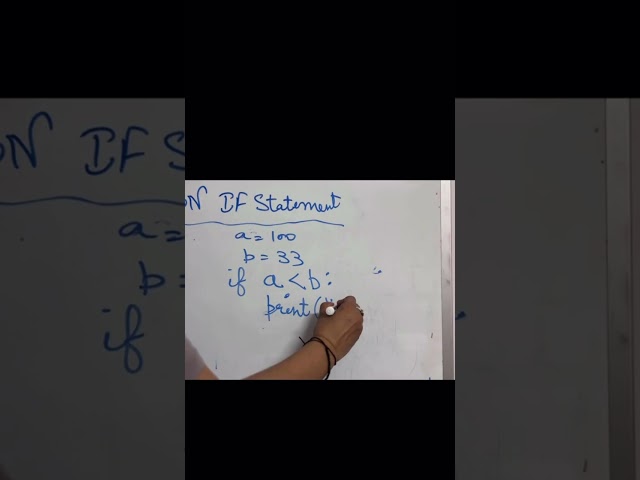 ON IF Statement
a = 100
b = 33
if a < b:
print("